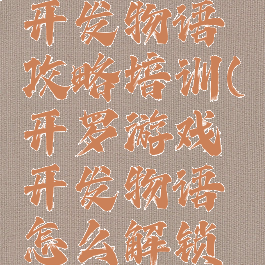 开发物语
攻略培训(
开罗游戏
开发物语
怎么解锁